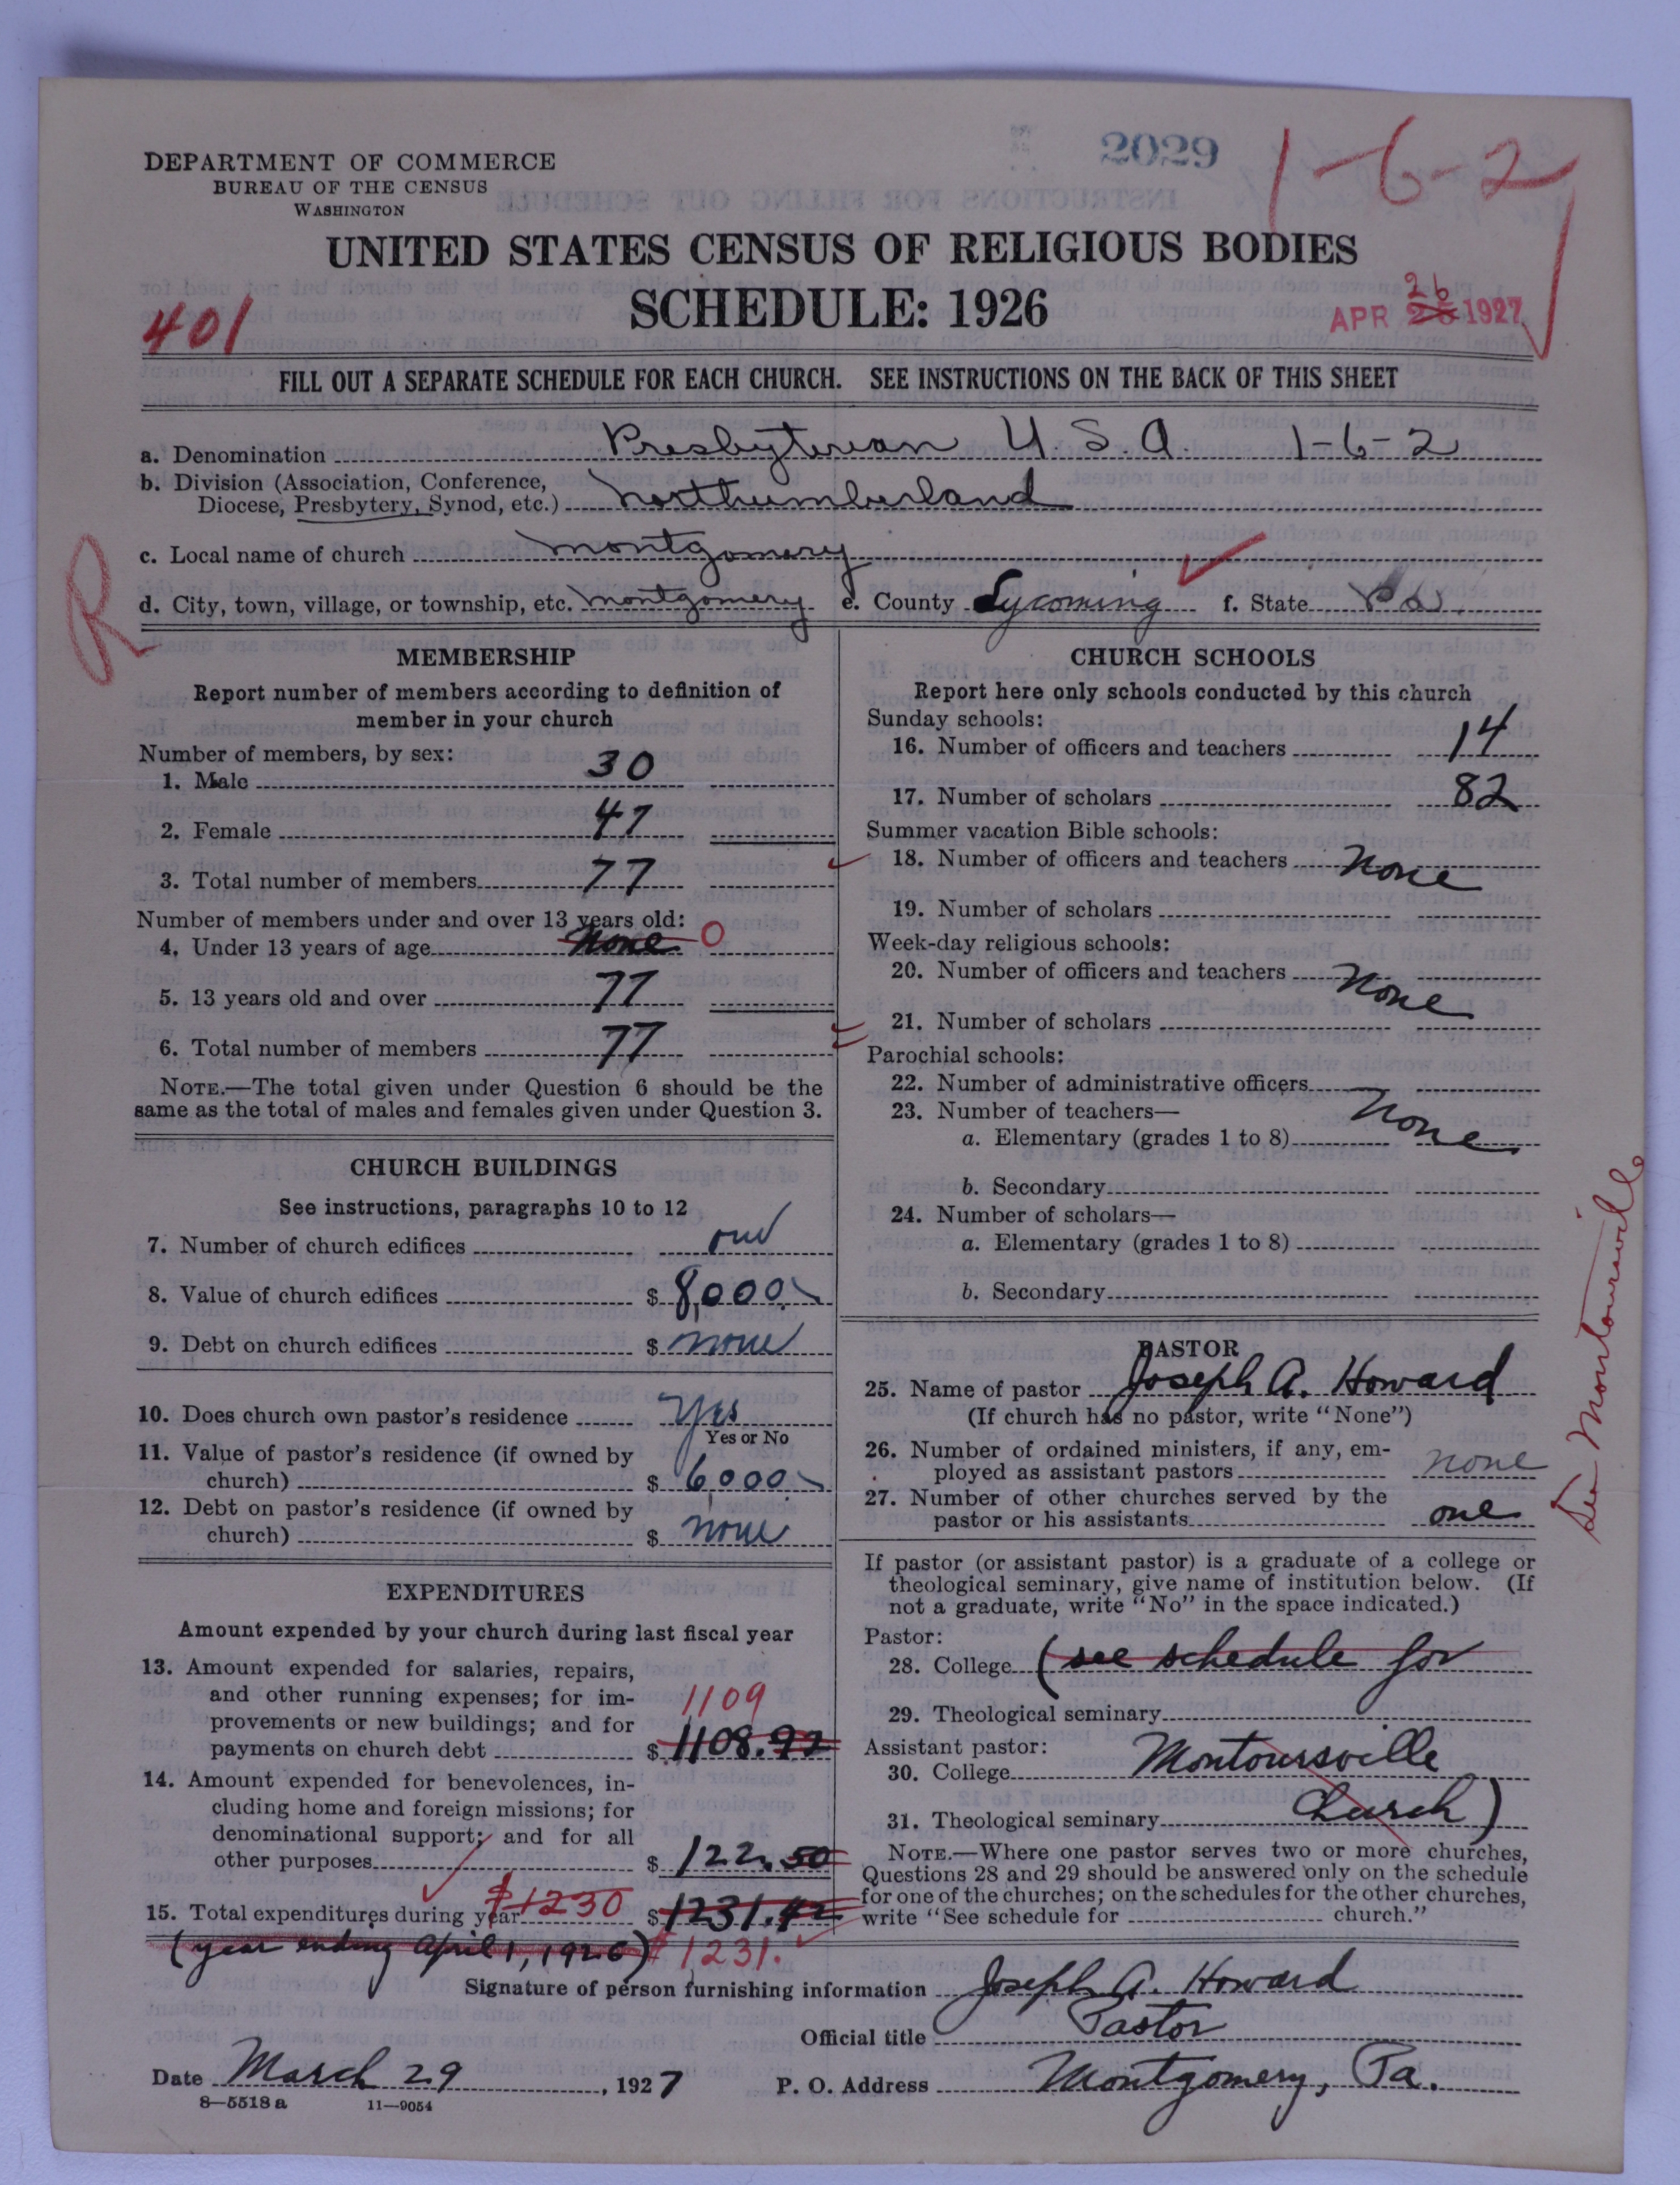 2029
1-6-2
DEPARTMENT OF COMMERCE
BUREAU OF THE CENSUS
WASHINGTON
UNITED STATES CENSUS OF RELIGIOUS BODIES
SCHEDULE: 1926
401
APR 26 1927
26
FILL OUT A SEPARATE SCHEDULE FOR EACH CHURCH. SEE INSTRUCTIONS ON THE BACK OF THIS SHEET
a. Denomination Presbyterian U.S.A. 1-6-2
b. Division (Association, Conference,
Diocese, Presbytery, Synod, etc.) Northumberland
c. Local name of church Montgomery
R
d. City, town, village, or township, etc. Montgomery e. County Lycoming f. State Pa.
MEMBERSHIP
Report number of members according to definition of
member in your church
Number of members, by sex:
1. Male 30
2. Female 47
3. Total number of members 77
Number of members under and over 13 years old:
4. Under 13 years of age None 0
5. 13 years old and over 77
6. Total number of members 77
NOTE.—The total given under Question 6 should be the
same as the total of males and females given under Question 3.
CHURCH BUILDINGS
See instructions, paragraphs 10 to 12
7. Number of church edifices one
8. Value of church edifices $ 8,000.
9. Debt on church edifices $ none
10. Does church own pastor's residence Yes
Yes or No
11. Value of pastor's residence (if owned by
church) $ 6,000.
12. Debt on pastor's residence (if owned by
church) $ none
EXPENDITURES
Amount expended by your church during last fiscal year
13. Amount expended for salaries, repairs,
and other running expenses; for im-
provements or new buildings; and for
1109
payments on church debt $ 1108.92
14. Amount expended for benevolences, in-
cluding home and foreign missions; for
denominational support; and for all
other purposes $ 122.50
15. Total expenditures during year $1230 $ 1231.42
(year ending April 1, 1926) $1231.
CHURCH SCHOOLS
Report here only schools conducted by this church
Sunday schools:
16. Number of officers and teachers 14
17. Number of scholars 82
Summer vacation Bible schools:
18. Number of officers and teachers None
19. Number of scholars
Week-day religious schools:
20. Number of officers and teachers None
21. Number of scholars
Parochial schools:
22. Number of administrative officers
23. Number of teachers— None
a. Elementary (grades 1 to 8)
b. Secondary
24. Number of scholars—
a. Elementary (grades 1 to 8)
b. Secondary
PASTOR
25. Name of pastor Joseph A. Howard
(If church has no pastor, write "None")
26. Number of ordained ministers, if any, em-
ployed as assistant pastors none
27. Number of other churches served by the
pastor or his assistants one
If pastor (or assistant pastor) is a graduate of a college or
theological seminary, give name of institution below. (If
not a graduate, write "No" in the space indicated.)
Pastor:
28. College (see schedule for
29. Theological seminary
Assistant pastor:
30. College Montoursville
31. Theological seminary Church)
NOTE.—Where one pastor serves two or more churches,
Questions 28 and 29 should be answered only on the schedule
for one of the churches; on the schedules for the other churches,
write "See schedule for church."
See Montoursville
Signature of person furnishing information Joseph A. Howard
Official title Pastor
Date March 29, 1927 P. O. Address Montgomery, Pa.
8—5518 a 11—9054